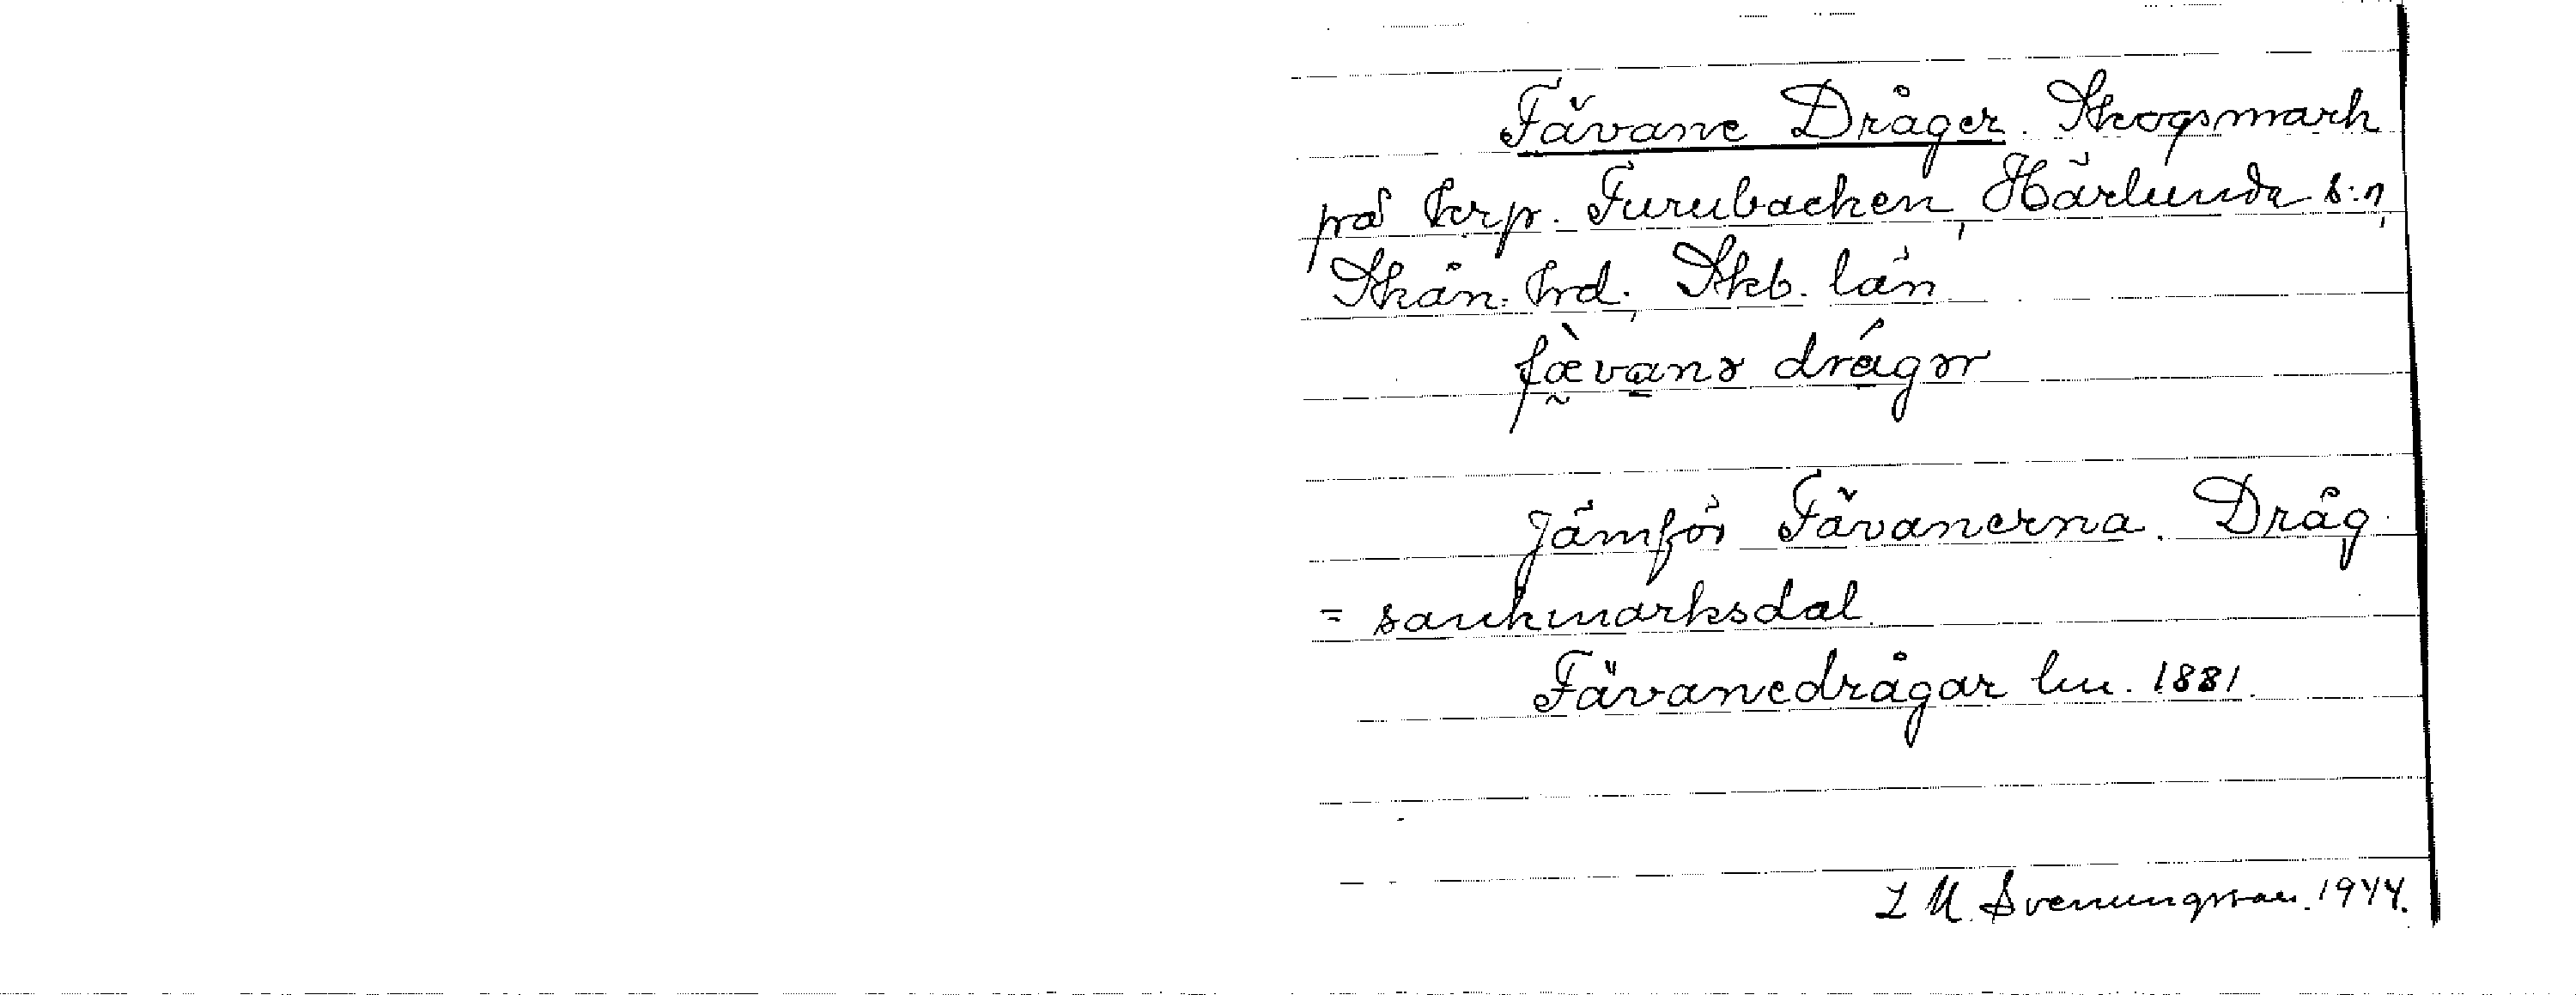 Fävane Dråger. Skogsmark
på krp. Furubacken, Härlunda s:n,
Skån. hrd., Skb. län
fæ̀vanə drágər
Jämför Fävanerna. Dråg
= sankmarksdal.
Fävanedrågar lm. 1881.
L M Svenungsson. 1944.